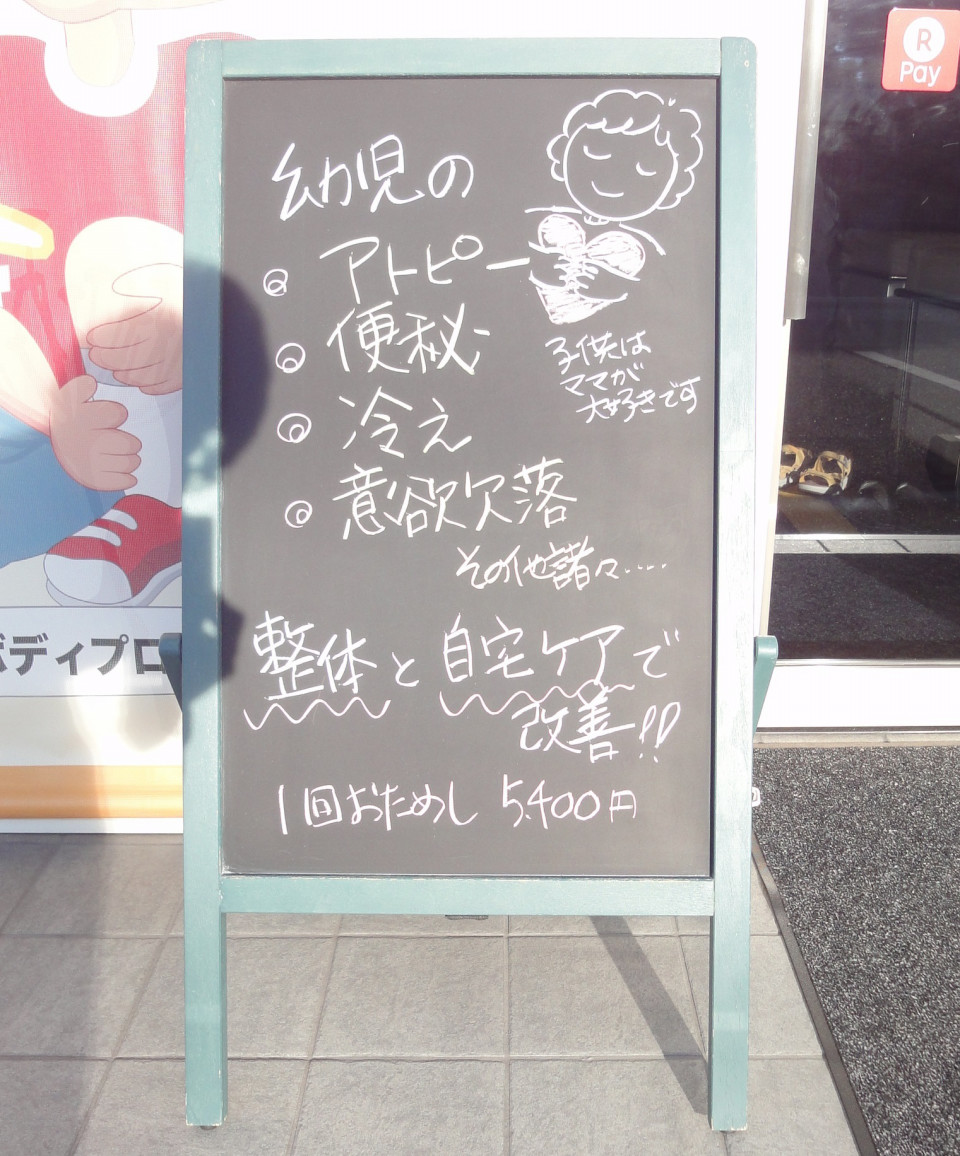 幼児の
アトピー
便秘
冷え
意欲欠落
その他諸々....
子供は
ママが
大好きです
整体と自宅ケアで
改善!!
1回おためし 5,400円
ボディプロ
R
Pay